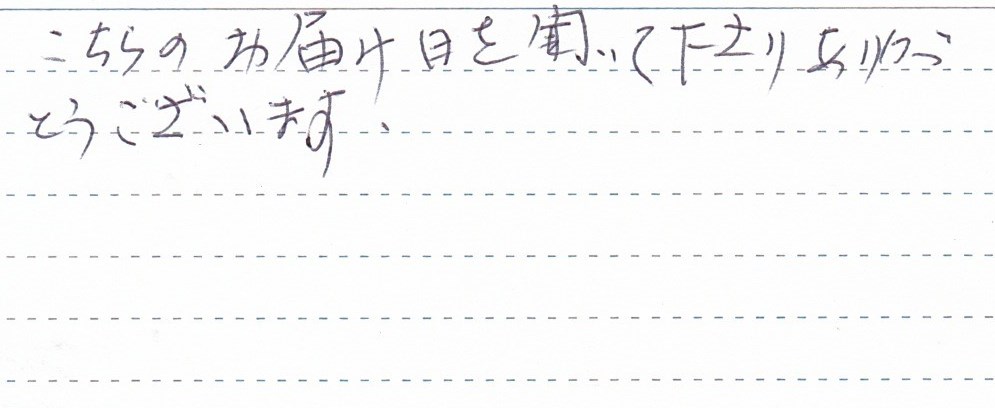 こちらのお届け日を聞いて下さりありが
とうございます.